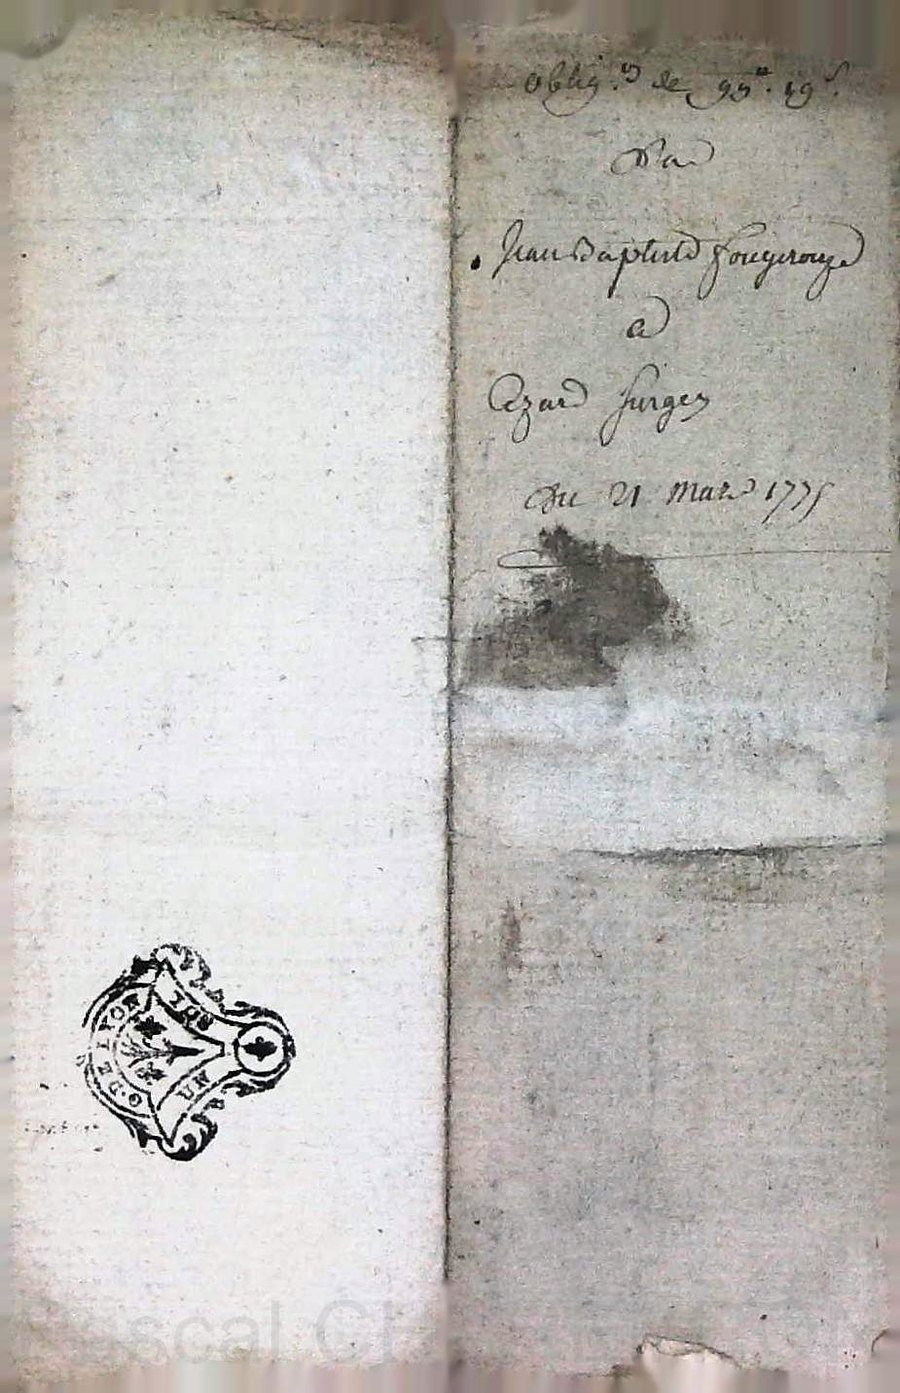 oblig.on de 93tt. 19s.
Par
Jean Baptiste fougerouze
a
Cezard furgez
Du 21 Mars 1775
G. DE LYON
UN SOL
Pascal